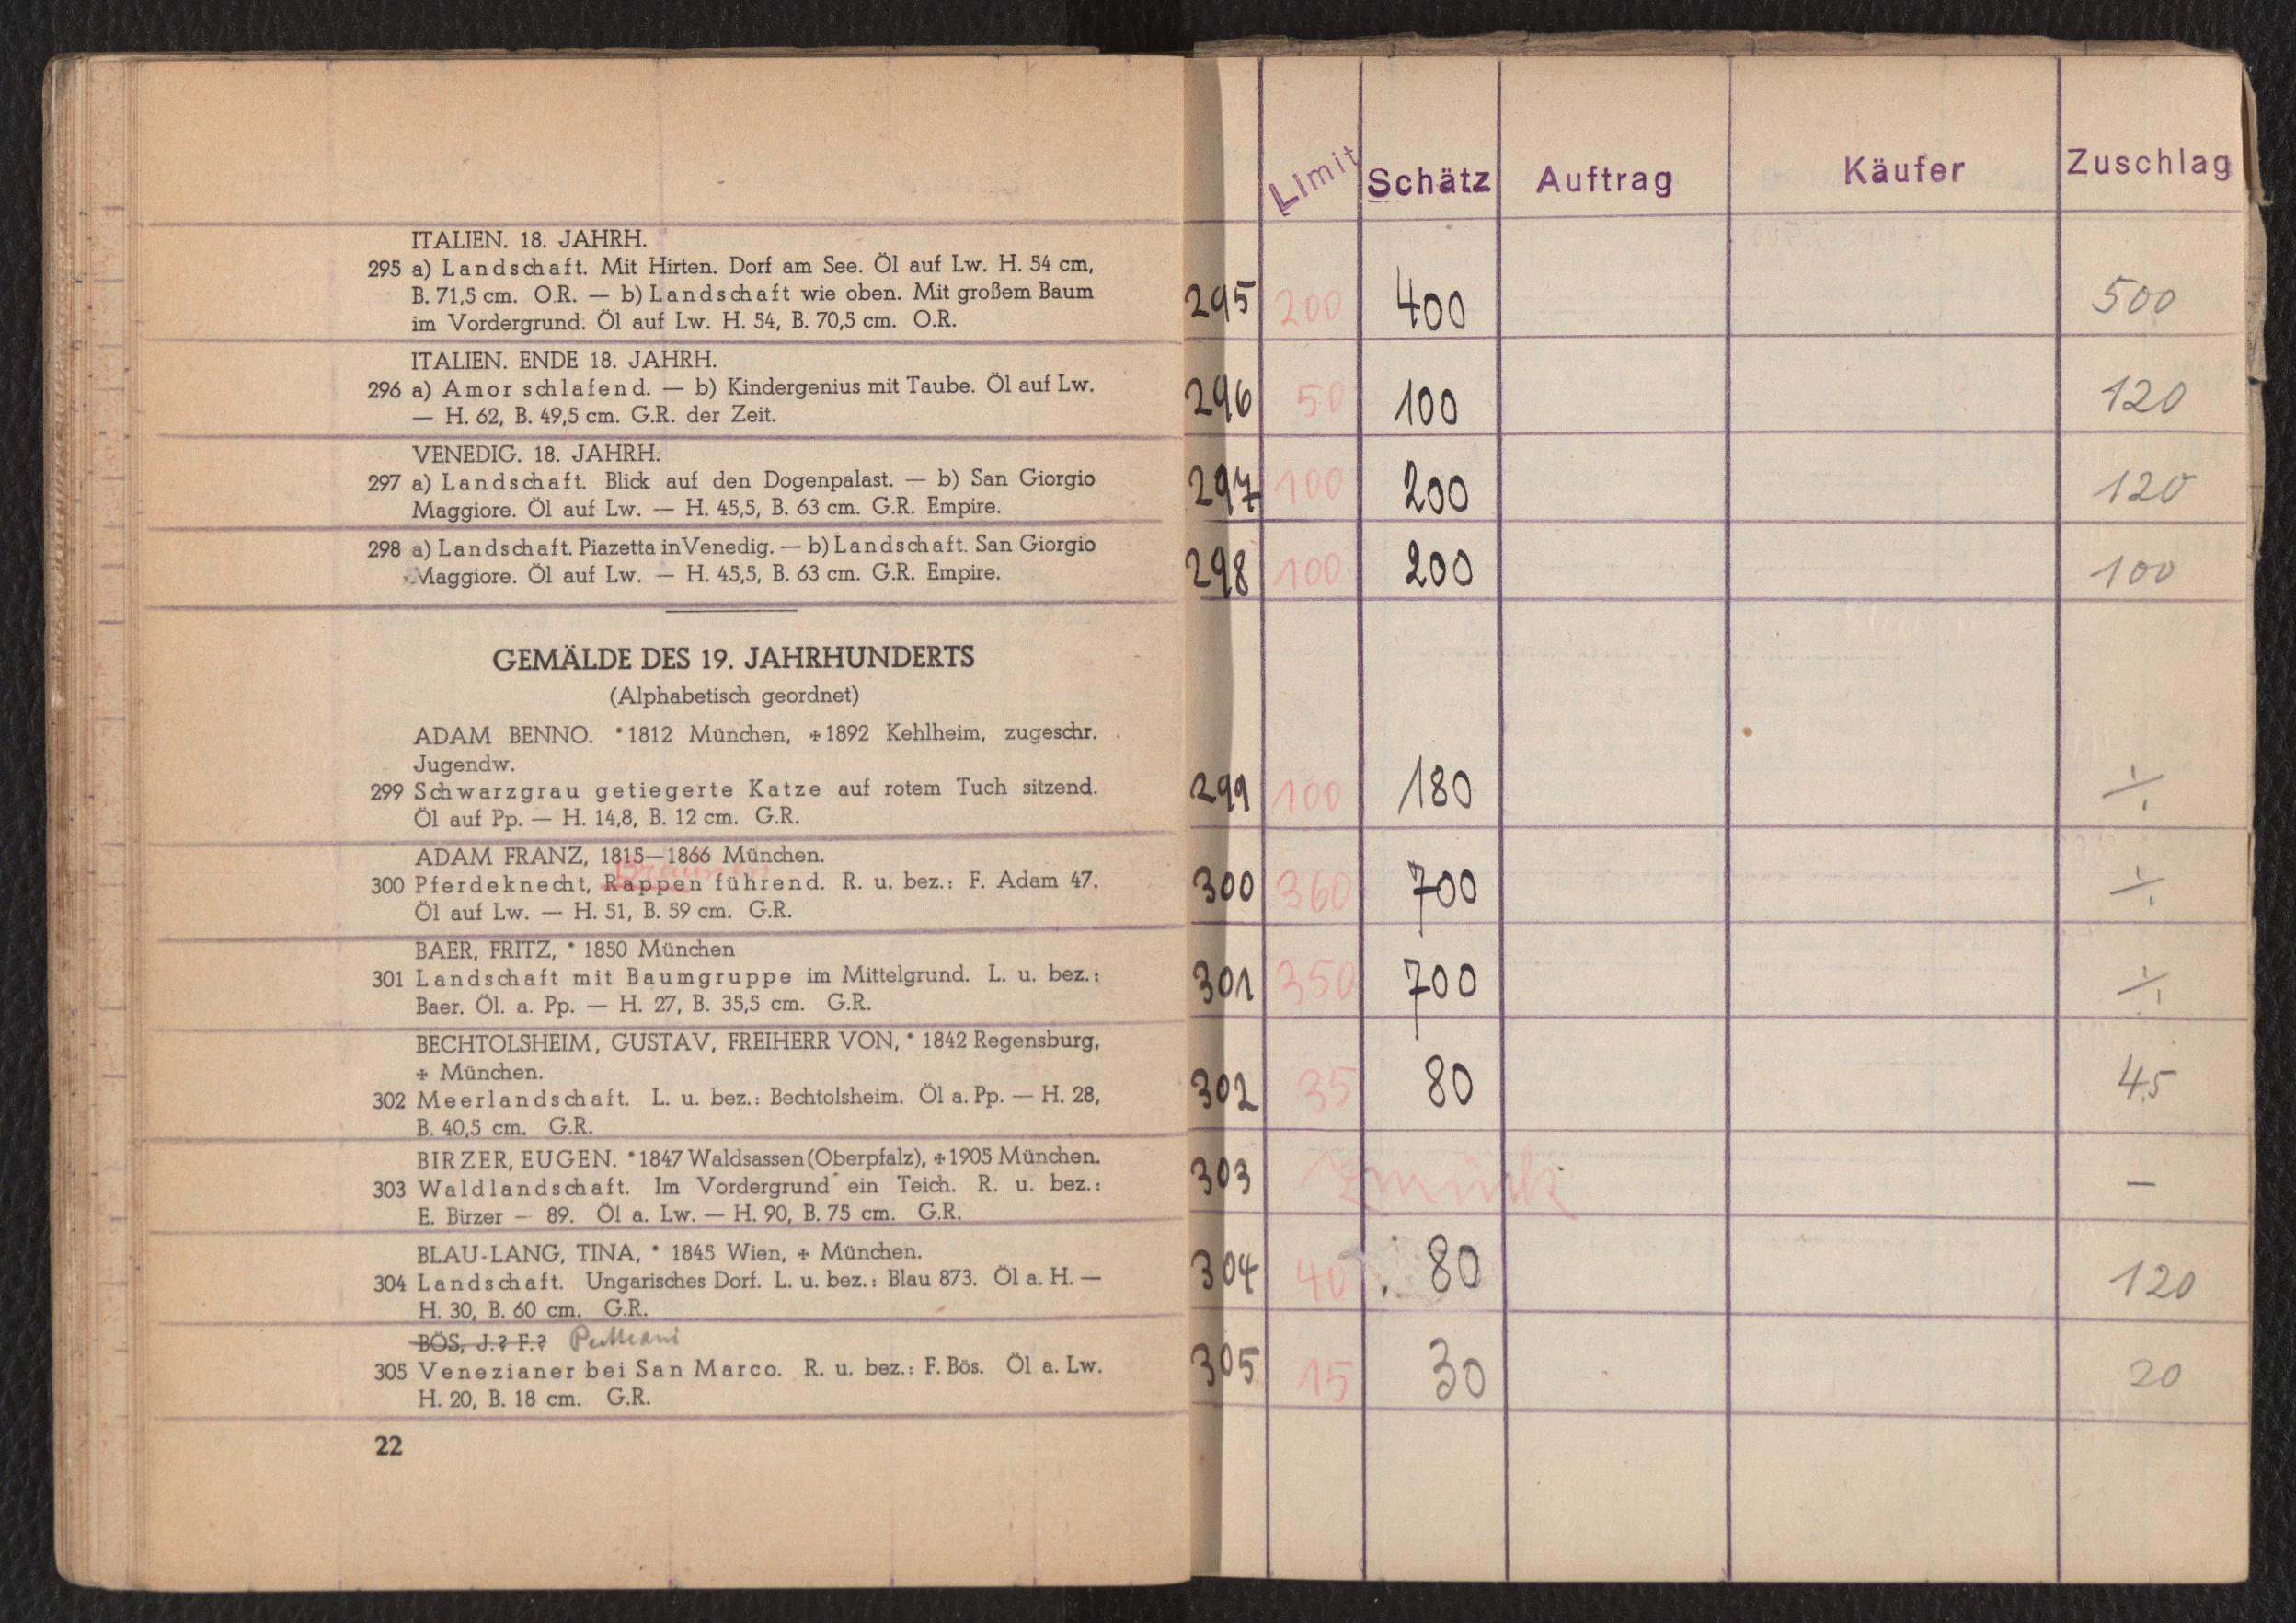 ITALIEN. 18. JAHRH.
295 a) Landschaft. Mit Hirten. Dorf am See. Öl auf Lw. H. 54 cm,
B. 71,5 cm. O.R. — b) Landschaft wie oben. Mit großem Baum
im Vordergrund. Öl auf Lw. H. 54, B. 70,5 cm. O.R.
ITALIEN. ENDE 18. JAHRH.
296 a) Amor schlafend. — b) Kindergenius mit Taube. Öl auf Lw.
— H. 62, B. 49,5 cm. G.R. der Zeit.
VENEDIG. 18. JAHRH.
297 a) Landschaft. Blick auf den Dogenpalast. — b) San Giorgio
Maggiore. Öl auf Lw. — H. 45,5, B. 63 cm. G.R. Empire.
298 a) Landschaft. Piazetta in Venedig. — b) Landschaft. San Giorgio
Maggiore. Öl auf Lw. — H. 45,5, B. 63 cm. G.R. Empire.
GEMÄLDE DES 19. JAHRHUNDERTS
(Alphabetisch geordnet)
ADAM BENNO. * 1812 München, ✠ 1892 Kehlheim, zugeschr.
Jugendw.
299 Schwarzgrau getiegerte Katze auf rotem Tuch sitzend.
Öl auf Pp. — H. 14,8, B. 12 cm. G.R.
ADAM FRANZ, 1815—1866 München.
300 Pferdeknecht, Rappen führend. R. u. bez.: F. Adam 47.
Öl auf Lw. — H. 51, B. 59 cm. G.R.
BAER, FRITZ, * 1850 München
301 Landschaft mit Baumgruppe im Mittelgrund. L. u. bez.:
Baer. Öl. a. Pp. — H. 27, B. 35,5 cm. G.R.
BECHTOLSHEIM, GUSTAV, FREIHERR VON, * 1842 Regensburg,
✠ München.
302 Meerlandschaft. L. u. bez.: Bechtolsheim. Öl a. Pp. — H. 28,
B. 40,5 cm. G.R.
BIRZER, EUGEN. * 1847 Waldsassen (Oberpfalz), ✠ 1905 München.
303 Waldlandschaft. Im Vordergrund ein Teich. R. u. bez.:
E. Birzer — 89. Öl a. Lw. — H. 90, B. 75 cm. G.R.
BLAU-LANG, TINA, * 1845 Wien, ✠ München.
304 Landschaft. Ungarisches Dorf. L. u. bez.: Blau 873. Öl a. H. —
H. 30, B. 60 cm. G.R.
BÖS, J.? F.?
305 Venezianer bei San Marco. R. u. bez.: F. Bös. Öl a. Lw.
H. 20, B. 18 cm. G.R.
22
Limit Schätz Auftrag Käufer Zuschlag
295 200 400 500
296 50 100 120
297 100 200 120
298 100 200 100
299 100 180 ÷
300 360 700 ÷
301 350 700 ÷
302 35 80 45
303 Zurück —
304 40 80 120
305 15 30 20